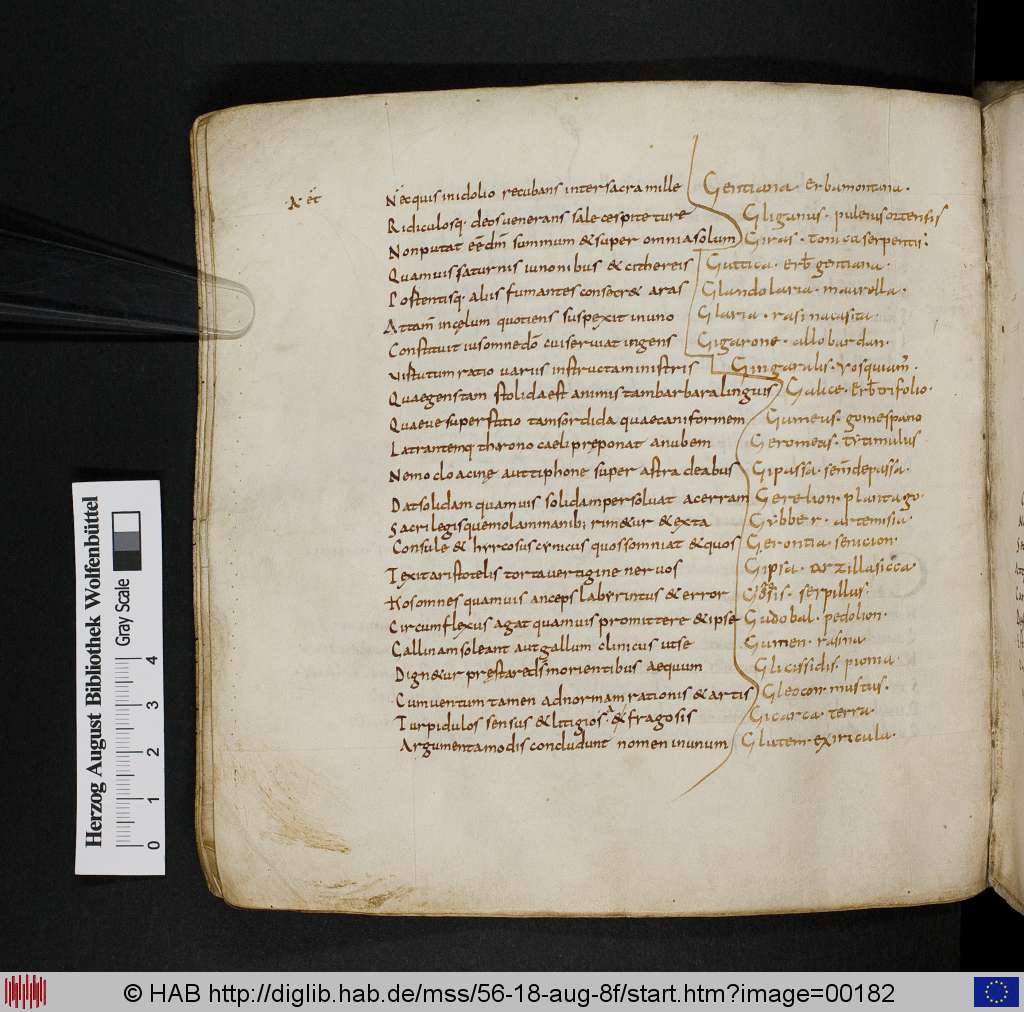 A· et
Nec quis inidolio recubans inter sacra mille
Ridiculosq· deos venerans sale cespite ture
Non putat eē dm̄ summum & super omnia solum
Quamuis saturnis iunonibus & cithereis
Postentisq· aliis fumantes consecr& aras
Attam̄ in cęlum quotiens suspexit in uno
Constituit ius omne dō cui seruiat ingens
uistutum ratio variis instructa ministris
Quae gens tam stolida est animis tam barbara linguis
Quaeue superstitio tam sordida quae caniformem
Latrantemq throno caeli pręponat anubem
Nemo cloacinę aut tiphone super astra deabus
Dat solidam quamuis solidam persoluat acerram
Sacrilegisque molam manib; rim&ur & exta
Consule & hyrcosus cynicus quos somniat & quos
Texit aristotelis torta vertigine neruos
Hos omnes quamuis anceps labyrintus & error
Circumflexus agat quamuis promittere & ipse
Gallinam soleant aut gallum clinicus ut se
Dign&ur pręstare ds̄ morientibus aequum
Cum uentum tamen ad normam rationis & artis
Turpidulos sensus & litigios & fragosis
Argumenta modis concludunt nomen in unum
Gentiana· erba montana·
Gligunus· puleiu ortensis
Giras· tonica serpentis·
Guttica· erb̄ gentiana·
Glandolaria· maurella·
Glaria· rasina casita·
Gigarone· allobardan·
Gingaralis· Yosquiam̄·
Galice· erb̄ trifolio·
Gumeus· gomespano
Gerometis· tytimulus
Gipassa· sem̄ depassa·
Gerelion· plantago·
Gybber· artemisia·
Gerontia· senicion·
Gipsa· arzilla sicca
serpillus·
Gudobal· pedolion·
Gumen· rasina
Glicissidis· pionia·
Gleocon· mustus·
Gicarca· terra
Glutem·
Herzog August Bibliothek Wolfenbüttel
Gray Scale
0 1 2 3 4
© HAB http://diglib.hab.de/mss/56-18-aug-8f/start.htm?image=00182